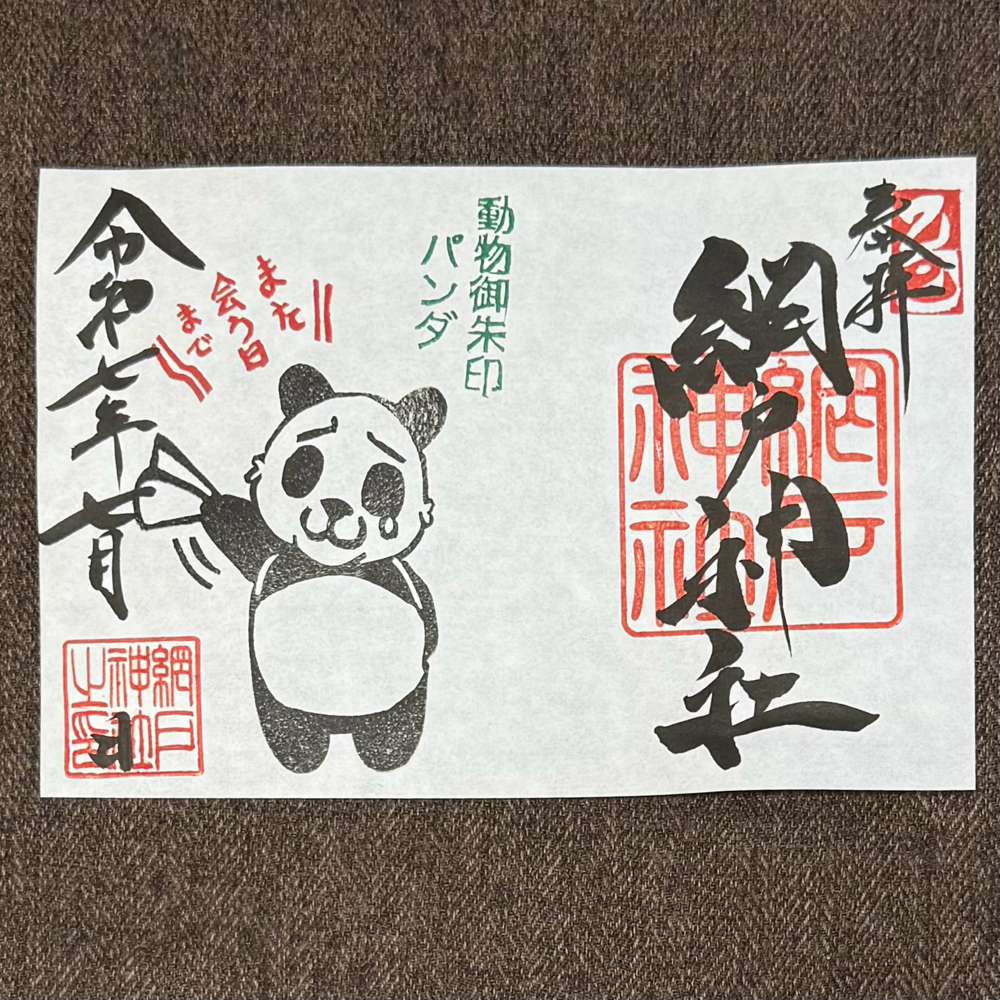 奉拝
網戸神社
網戸
神社
動物御朱印
パンダ
また
会う日
まで
令和七年七月
日
網戸
神社
之印